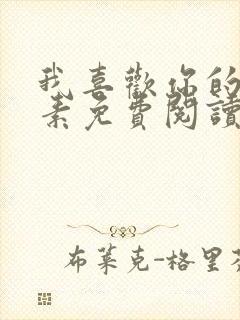 我喜歡你的
素免費閱讀
布萊克-格里芬